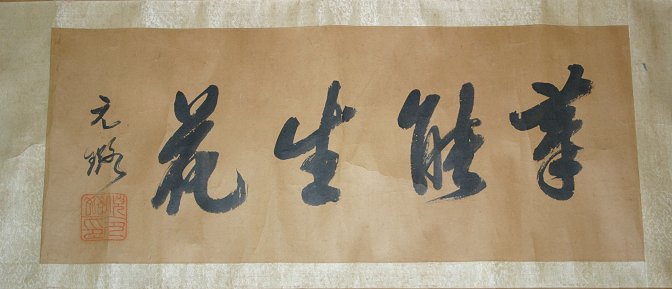 筆能生花
元璐